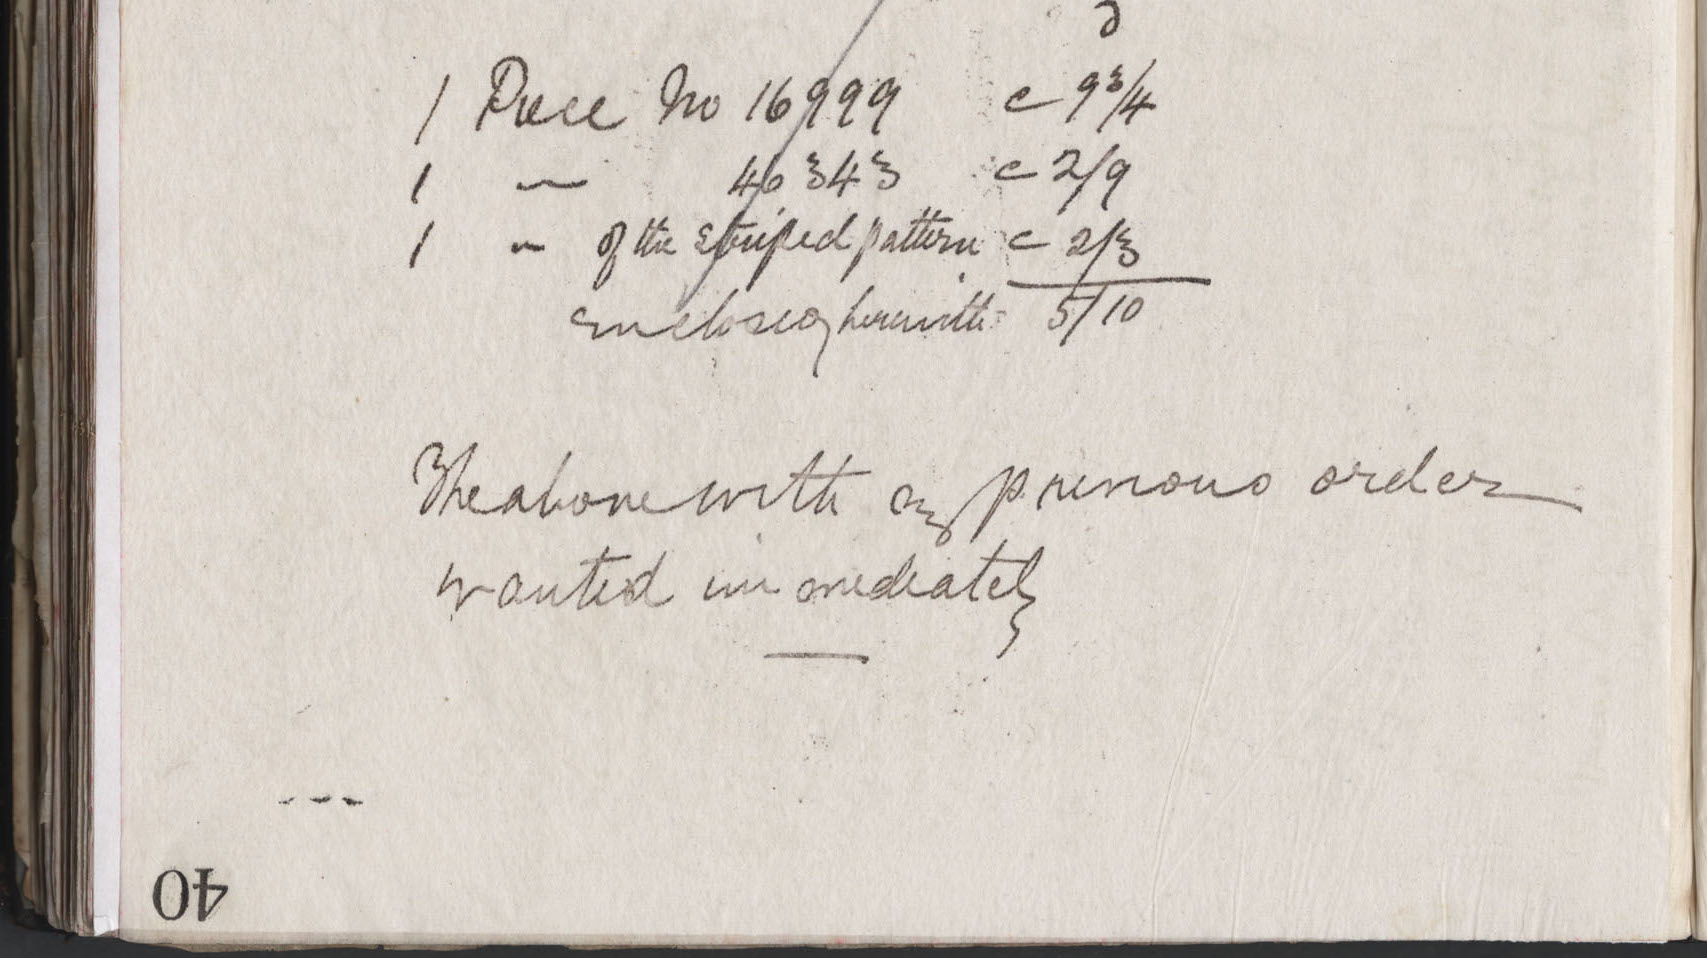 d
1 Piece No 16999 @ 9 3/4
1 " 46343 @ 2/9
1 " of the striped pattern @ 2/3
enclosed herewith 5/10
The above with my previous order
wanted immediately
40